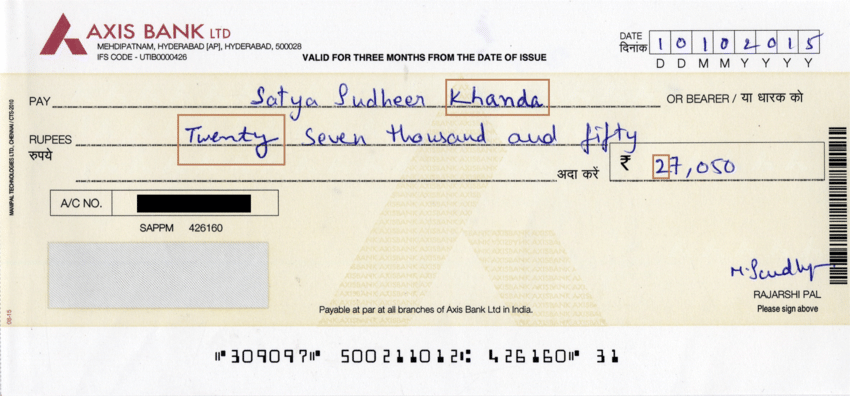 AXIS BANK LTD
MEHDIPATNAM, HYDERABAD [AP], HYDERABAD, 500028
IFS CODE - UTIB0000426
VALID FOR THREE MONTHS FROM THE DATE OF ISSUE
DATE
दिनांक 10102015
D D M M Y Y Y Y
PAY Satya Sudheer Khanda OR BEARER / या धारक को
RUPEES Twenty Seven thousand and fifty
रुपये
अदा करें ₹ 27,050
A/C NO.
SAPPM 426160
MANIPAL TECHNOLOGIES LTD., CHENNAI / CTS-2010
RAJARSHI PAL
Please sign above
Payable at par at all branches of Axis Bank Ltd in India.
⑈309097⑈ 500211012⑆ 426160⑈ 31